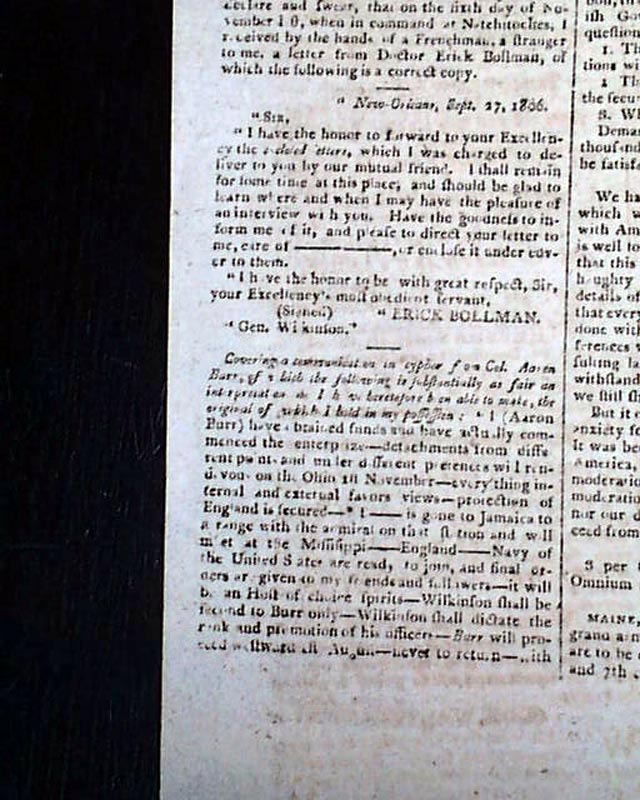 declare and swear, that on the sixth day of No-
vember 1 0, when in command at Natchitoches, I
received by the hands of a Frenchman, a stranger
to me, a letter from Doctor Erick Bollman, of
which the following is a correct copy.
" New-Orleans, Sept. 27, 1806.
" Sir,
" I have the honor to forward to your Excellen-
cy the letters, which I was charged to de-
liver to you by our mutual friend. I shall remain
for some time at this place, and should be glad to
learn where and when I may have the pleasure of
an interview with you. Have the goodness to in-
form me of it, and please to direct your letter to
me, care of ——— ———, or enclose it under cov-
er to them.
" I have the honor to be with great respect, Sir,
your Excellency's most obedient servant,
(Signed) " ERICK BOLLMAN.
" Gen. Wilkinson."
Covering a communication in cypher from Col. Aaron
Burr, of which the following is substantially as fair an
interpretation as I have heretofore been able to make, the
original of which I hold in my possession : " I (Aaron
Burr) have obtained funds and have actually com-
menced the enterprize—detachments from diffe-
rent points and under different pretences will ren-
dezvous on the Ohio 1st November—every thing in-
ternal and external favors views—protection of
England is secured—* T —— is gone to Jamaica to
arrange with the admiral on that station and will
meet at the Missisippi——England——Navy of
the United States are ready to join, and final or-
ders are given to my friends and followers—it will
be an Host of choice spirits—Wilkinson shall be
second to Burr only—Wilkinson shall dictate the
rank and promotion of his officers—Burr will pro-
ceed westward 1st August—never to return—with
ish Go
question
1. T
tions wi
the secur
3. W
Dema
thousand
be satisf
We ha
which w
with Am
is well to
that this
haughty
details of
that every
done with
ferences
sulting la
withstand
we still
But it
anxiety fo
It was be
America,
moderatio
moderatio
nor our d
ceed from
3 per
Omnium
MAINE,
grand
are to be
and 7th